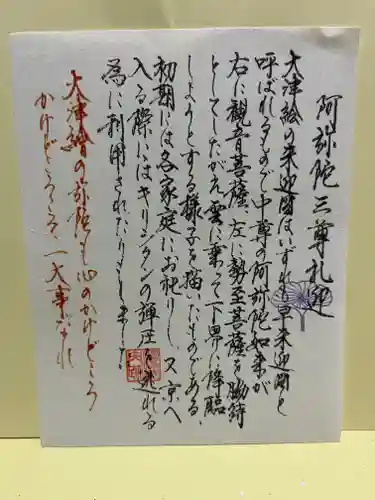 阿弥陀三尊礼迎
大津絵の来迎図はいずれも早来迎図と
呼ばれるもので中尊の阿弥陀如来が
右に観音菩薩、左に勢至菩薩を脇侍
としてしたがえ雲に乗って下界に降臨
しようとする様子を描いたものである、
初期には各家庭にお祀りし、又京へ
入る際にはキリシタンの弾圧を逃れる
為に利用されたりもしました
大津繪の弥陀も心のかけどころ
かけどころころ、一大事なれ